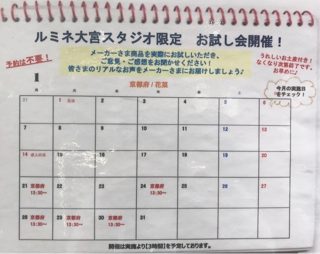 ルミネ大宮スタジオ限定　お試し会開催！
メーカーさま商品を実際にお試しいただき、
ご意見・ご感想をお聞かせください！
皆さまのリアルなお声をメーカーさまにお届けしましょう♪
予約は不要！
うれしいお土産付き！
なくなり次第終了です。
お早めに♪
1
京都府/花菜
今月の実施日
をチェック！
31 1 元旦 2 3 4 5 6
7 8 9 10 11 12 13
14 成人の日 15 16 17 18 19 20
21 京都府 22 23 24 京都府 25 26 27
15:30~ 15:30~
28 京都府 29 京都府 30 京都府 31
15:30~ 15:30~ 15:30~
開催は実施より【3時間】を予定しております。